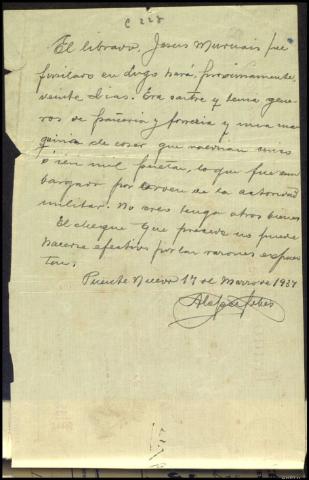 C 228
El librado, Jesus Murais fue
fusilado en Lugo hará, proximamente,
veinte dias. Era sastre y tenia gene-
ros de pañeria y forreria y una ma-
quina de coser que valdrian unas
cien mil pesetas, lo que fue em-
bargado por orden de la autoridad
militar. No creo tenga otros bienes
El cheque que precede no puede
hacerse efectivo por las razones expues-
tas.
Puente Nuevo 17 de Marzo de 1937